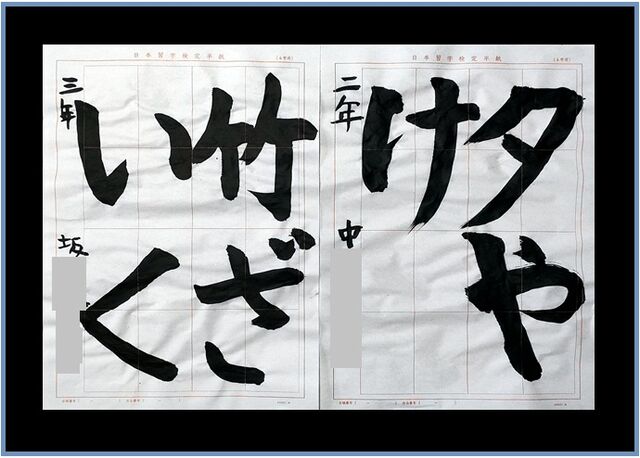 日本習字検定半紙
夕や
け
二年 中
日本習字検定半紙
竹ざ
いく
三年 坂